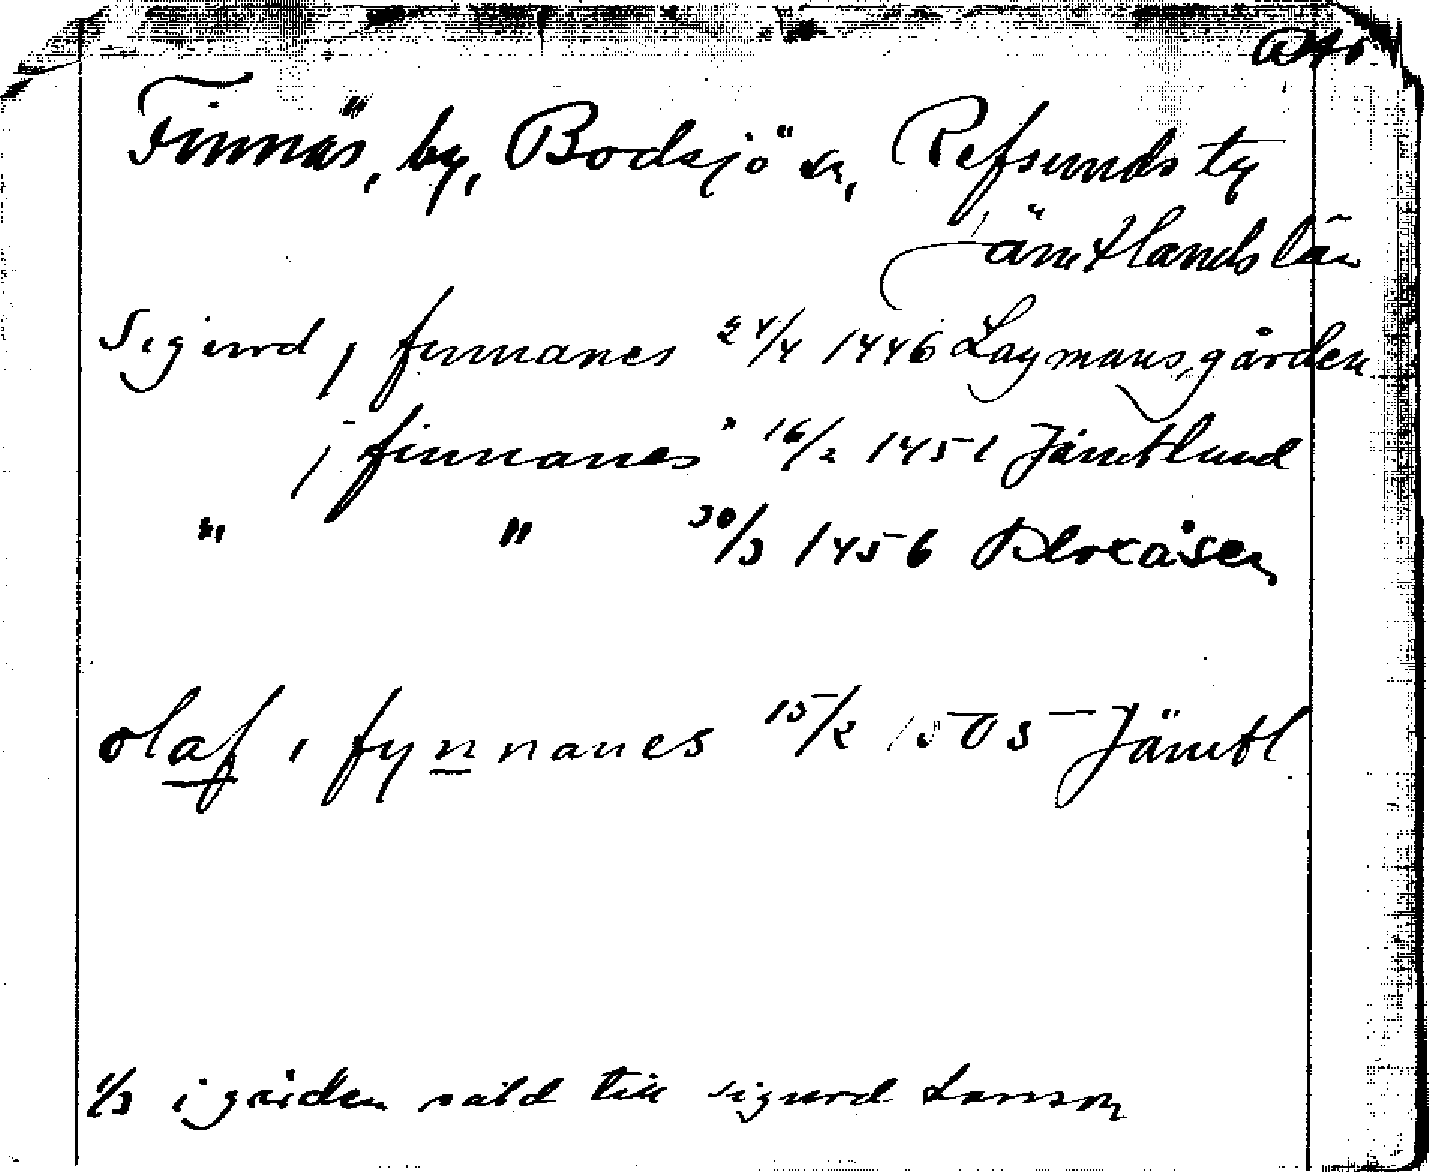 Finnäs, by, Bodsjö sn, Refsunds tg
Jämtlands län
Sigurd j finnanes 24/4 1446 Lagmansgården
j finnanes 16/2 1451 Jämtland
" " 30/3 1456 Blocåsen
olaf i fynnanes 15/2 1505 Jämtl
1/3 i gården såld till sigurd Larsson